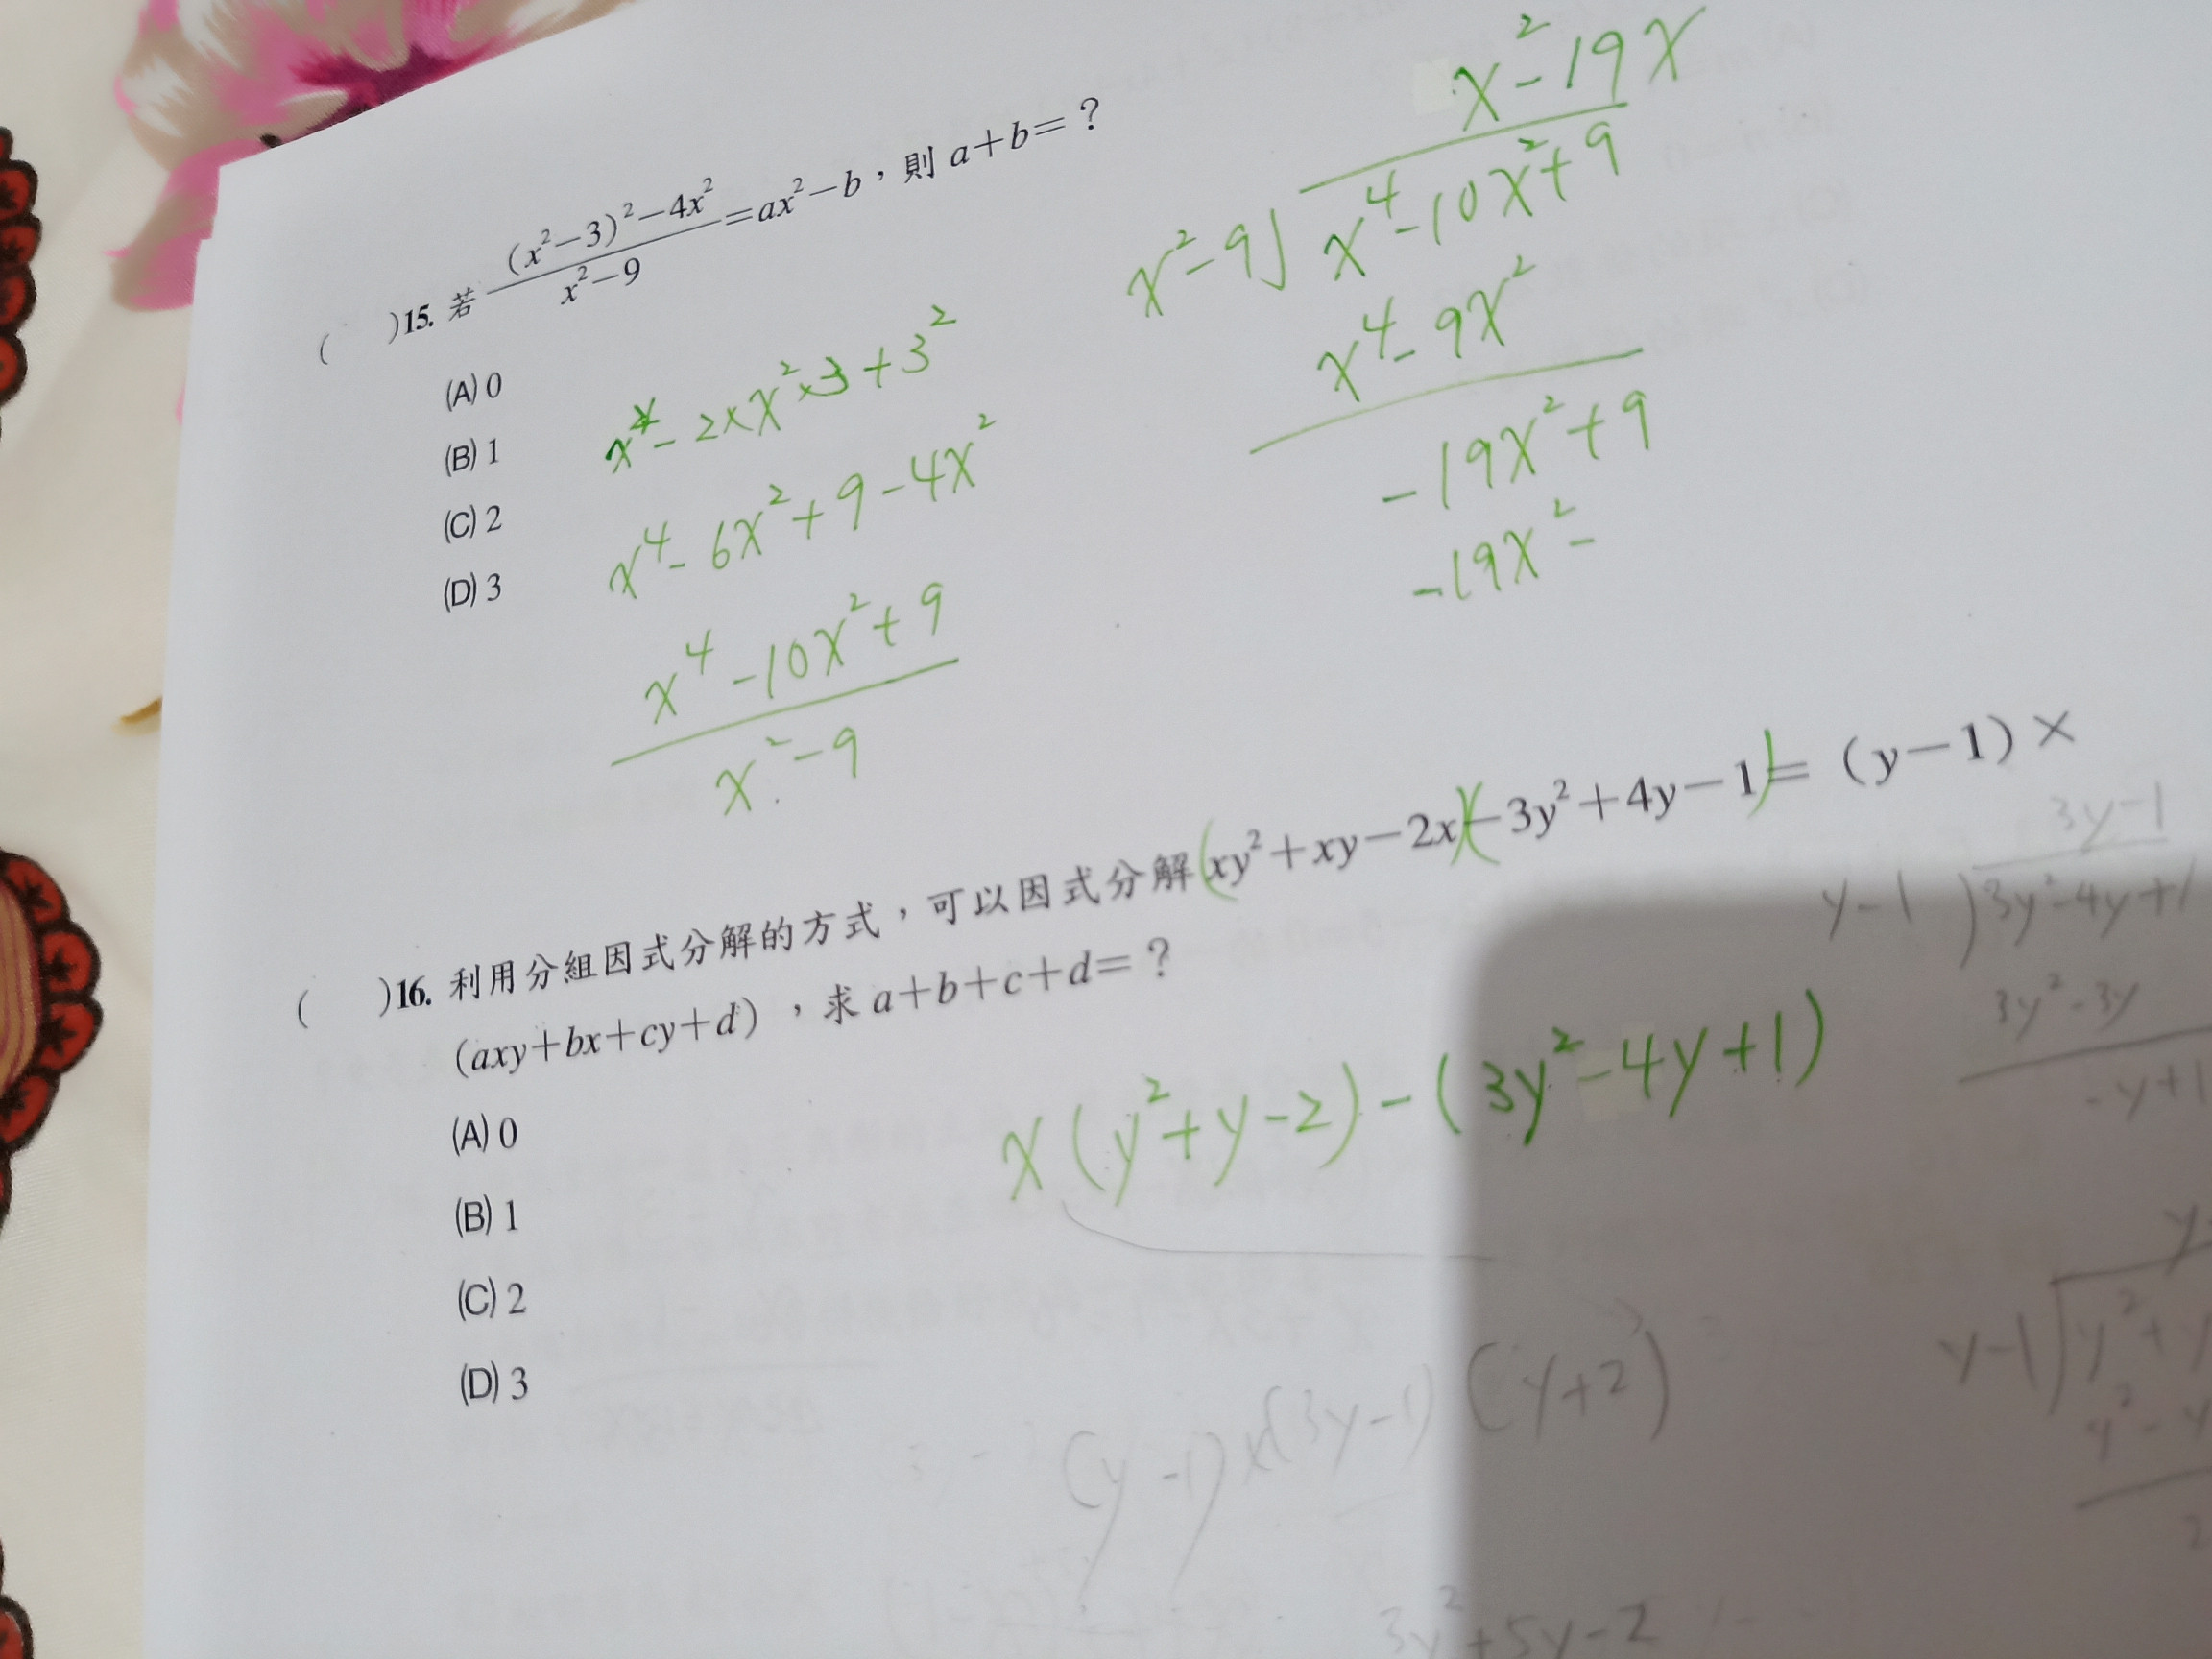 ( )15. 若 (x²−3)²−4x² / x²−9 =ax²−b，則 a+b=？
(A) 0
(B) 1
(C) 2
(D) 3
x⁴ - 2×x²×3+3²
x⁴- 6x²+9-4x²
x⁴-10x²+9
x²-9
x²-19x
x²-9) x⁴-10x²+9
x⁴-9x²
-19x²+9
-19x²-
( )16. 利用分組因式分解的方式，可以因式分解(xy²+xy−2x)(−3y²+4y−1)=（y−1）×
(axy+bx+cy+d)，求 a+b+c+d=？
(A) 0
(B) 1
(C) 2
(D) 3
x(y²+y-2)-(3y²-4y+1)
(y-1)x(3y-1)(y+2)
3y²+5y-2
3y-1
y-1)3y²-4y+1
3y²-3y
-y+1
y
y-1)y²+y
y²-y
2